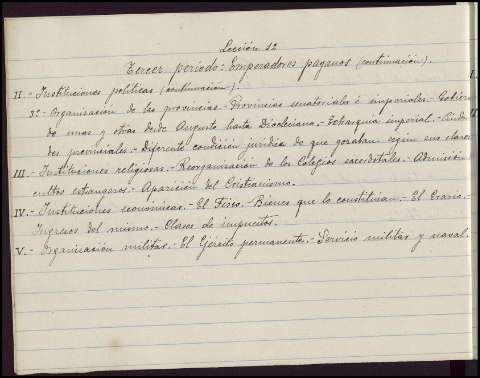 Lección 12
Tercer periodo: Emperadores paganos (continuación).
II.- Instituciones políticas (continuación).-
3º.- Organización de las provincias.- Provincias senatoriales é imperiales.- Gobierno
de unas y otras desde Augusto hasta Diocleciano.- Jerarquía imperial.- Ciuda-
des provinciales.- Diferente condición jurídica de que gozaban según sus clases.
III.- Instituciones religiosas.- Reorganización de los Colegios sacerdotales.- Admisión
cultos extangeros.- Aparición del Cristianismo.
IV.- Instituciones económicas.- El Fisco.- Bienes que lo constituían.- El Erario.-
Ingresos del mismo.- Clases de impuestos.
V.- Organización militar.- El Ejército permanente.- Servicio militar y naval.